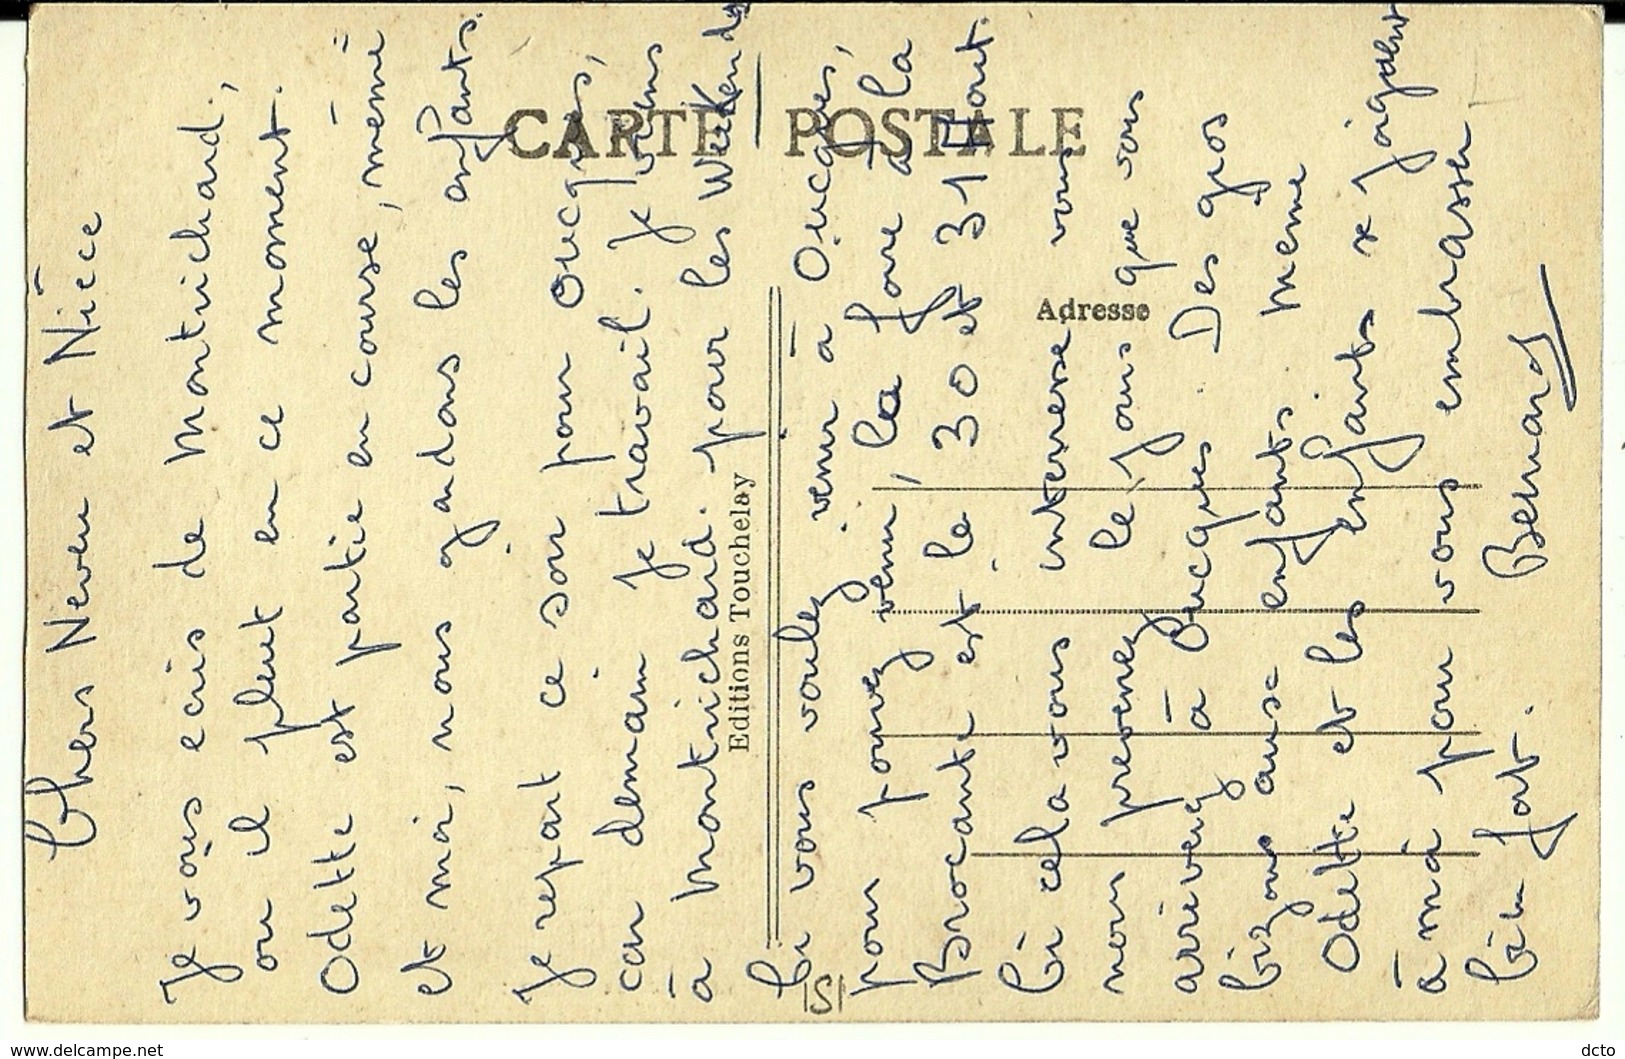 CARTE POSTALE
Adresse
Editions Touchelay
Chers Neveu et Nièce
Je vous ecris de Montrichard,
ou il pleut en ce moment.
Odette est partie en course, mème
et moi, nous gardons les enfants.
Je repart ce soir pour Oucques,
car demain je travail. Je viens
à Montrichard. pour les Week end
Si vous voulez venir à Oucques,
pour pouvez venir, la foire à la
Brocante est le 30 et 31 Aout.
Si cela vous interesse vous
nous prevenez le jour que vous
arriverez à Oucques. Des gros
bizous aux enfants meme
Odette et les enfants se joignent
à moi pour vous embrasser
bien fort. Bernard
S
www.delcampe.net
dcto